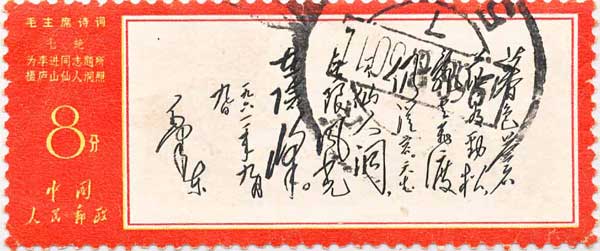 毛主席诗词
七绝
为李进同志题所
摄庐山仙人洞照
8分
中国
人民邮政
暮色苍茫
看劲松,
乱云飞渡
仍从容。天生
一个仙人洞,
无限风光
在险峰。
一九六一年九月
九日
毛泽东